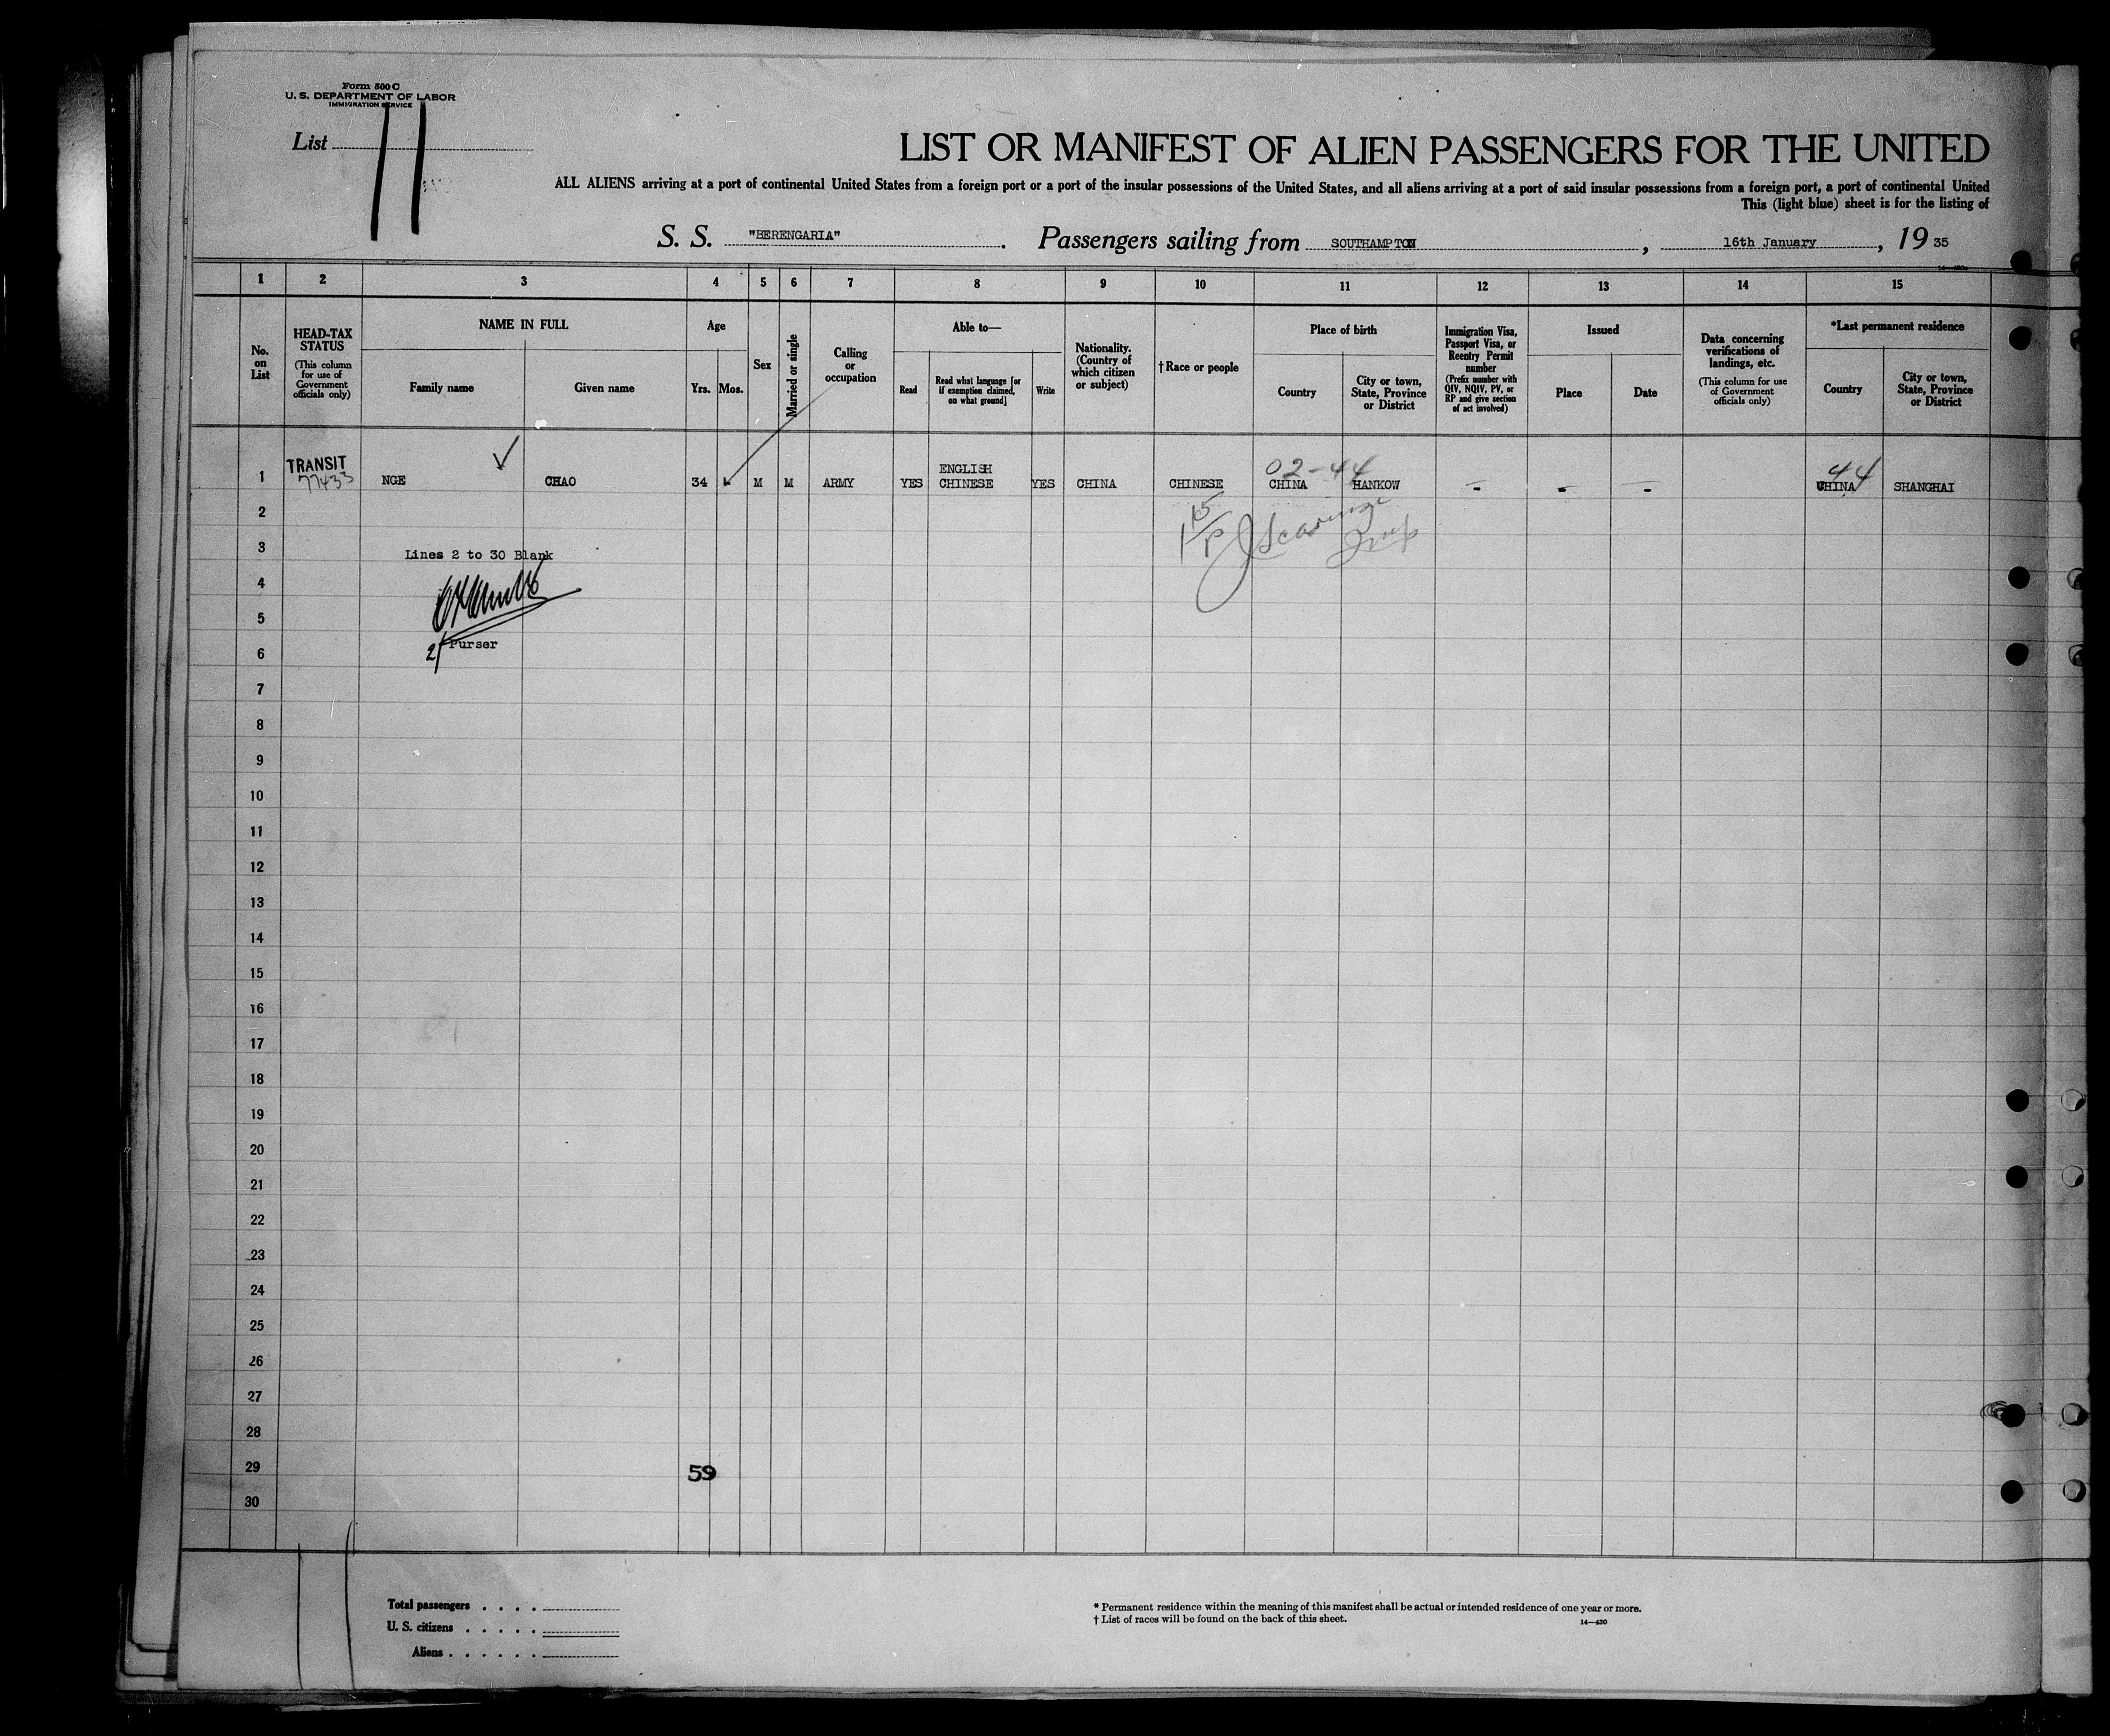 Form 500 C
U. S. DEPARTMENT OF LABOR
IMMIGRATION SERVICE
List 11
LIST OR MANIFEST OF ALIEN PASSENGERS FOR THE UNITED
ALL ALIENS arriving at a port of continental United States from a foreign port or a port of the insular possessions of the United States, and all aliens arriving at a port of said insular possessions from a foreign port, a port of continental United
This (light blue) sheet is for the listing of
S. S. "BERENGARIA". Passengers sailing from SOUTHAMPTON, 16th January, 19 35
1 2 3 4 5 6 7 8 9 10 11 12 13 14 15
No. on List
HEAD-TAX STATUS (This column for use of Government officials only)
NAME IN FULL
Family name
Given name
Age
Yrs.
Mos.
Sex
Married or single
Calling or occupation
Able to—
Read
Read what language [or if exemption claimed, on what ground]
Write
Nationality. (Country of which citizen or subject)
†Race or people
Place of birth
Country
City or town, State, Province or District
Immigration Visa, Passport Visa, or Reentry Permit number (Prefix number with QIV, NQIV, PV, or RP and give section of act involved)
Issued
Place
Date
Data concerning verifications of landings, etc. (This column for use of Government officials only)
*Last permanent residence
Country
City or town, State, Province or District
TRANSIT ENGLISH 02-44 44
1 77433 NGE CHAO 34 M M ARMY YES CHINESE YES CHINA CHINESE CHINA HANKOW - - - CHINA SHANGHAI
2
3 Lines 2 to 30 Blank
4
5
6 Purser
7
8
9
10
11
12
13
14
15
16
17
18
19
20
21
22
23
24
25
26
27
28
29 59
30
Total passengers . . . .
U. S. citizens . . . . .
Aliens . . . . . .
* Permanent residence within the meaning of this manifest shall be actual or intended residence of one year or more.
† List of races will be found on the back of this sheet.
14—430